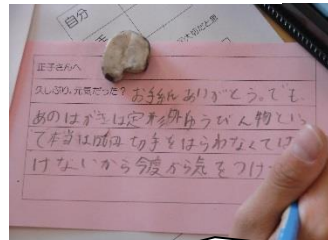 自分
正子さんへ
久しぶり。元気だった?お手紙ありがとう。でも、
あのはがきは定形外ゆうびん物といっ
て本当は 切手をはらわなくては
けないから今度から気をつけ